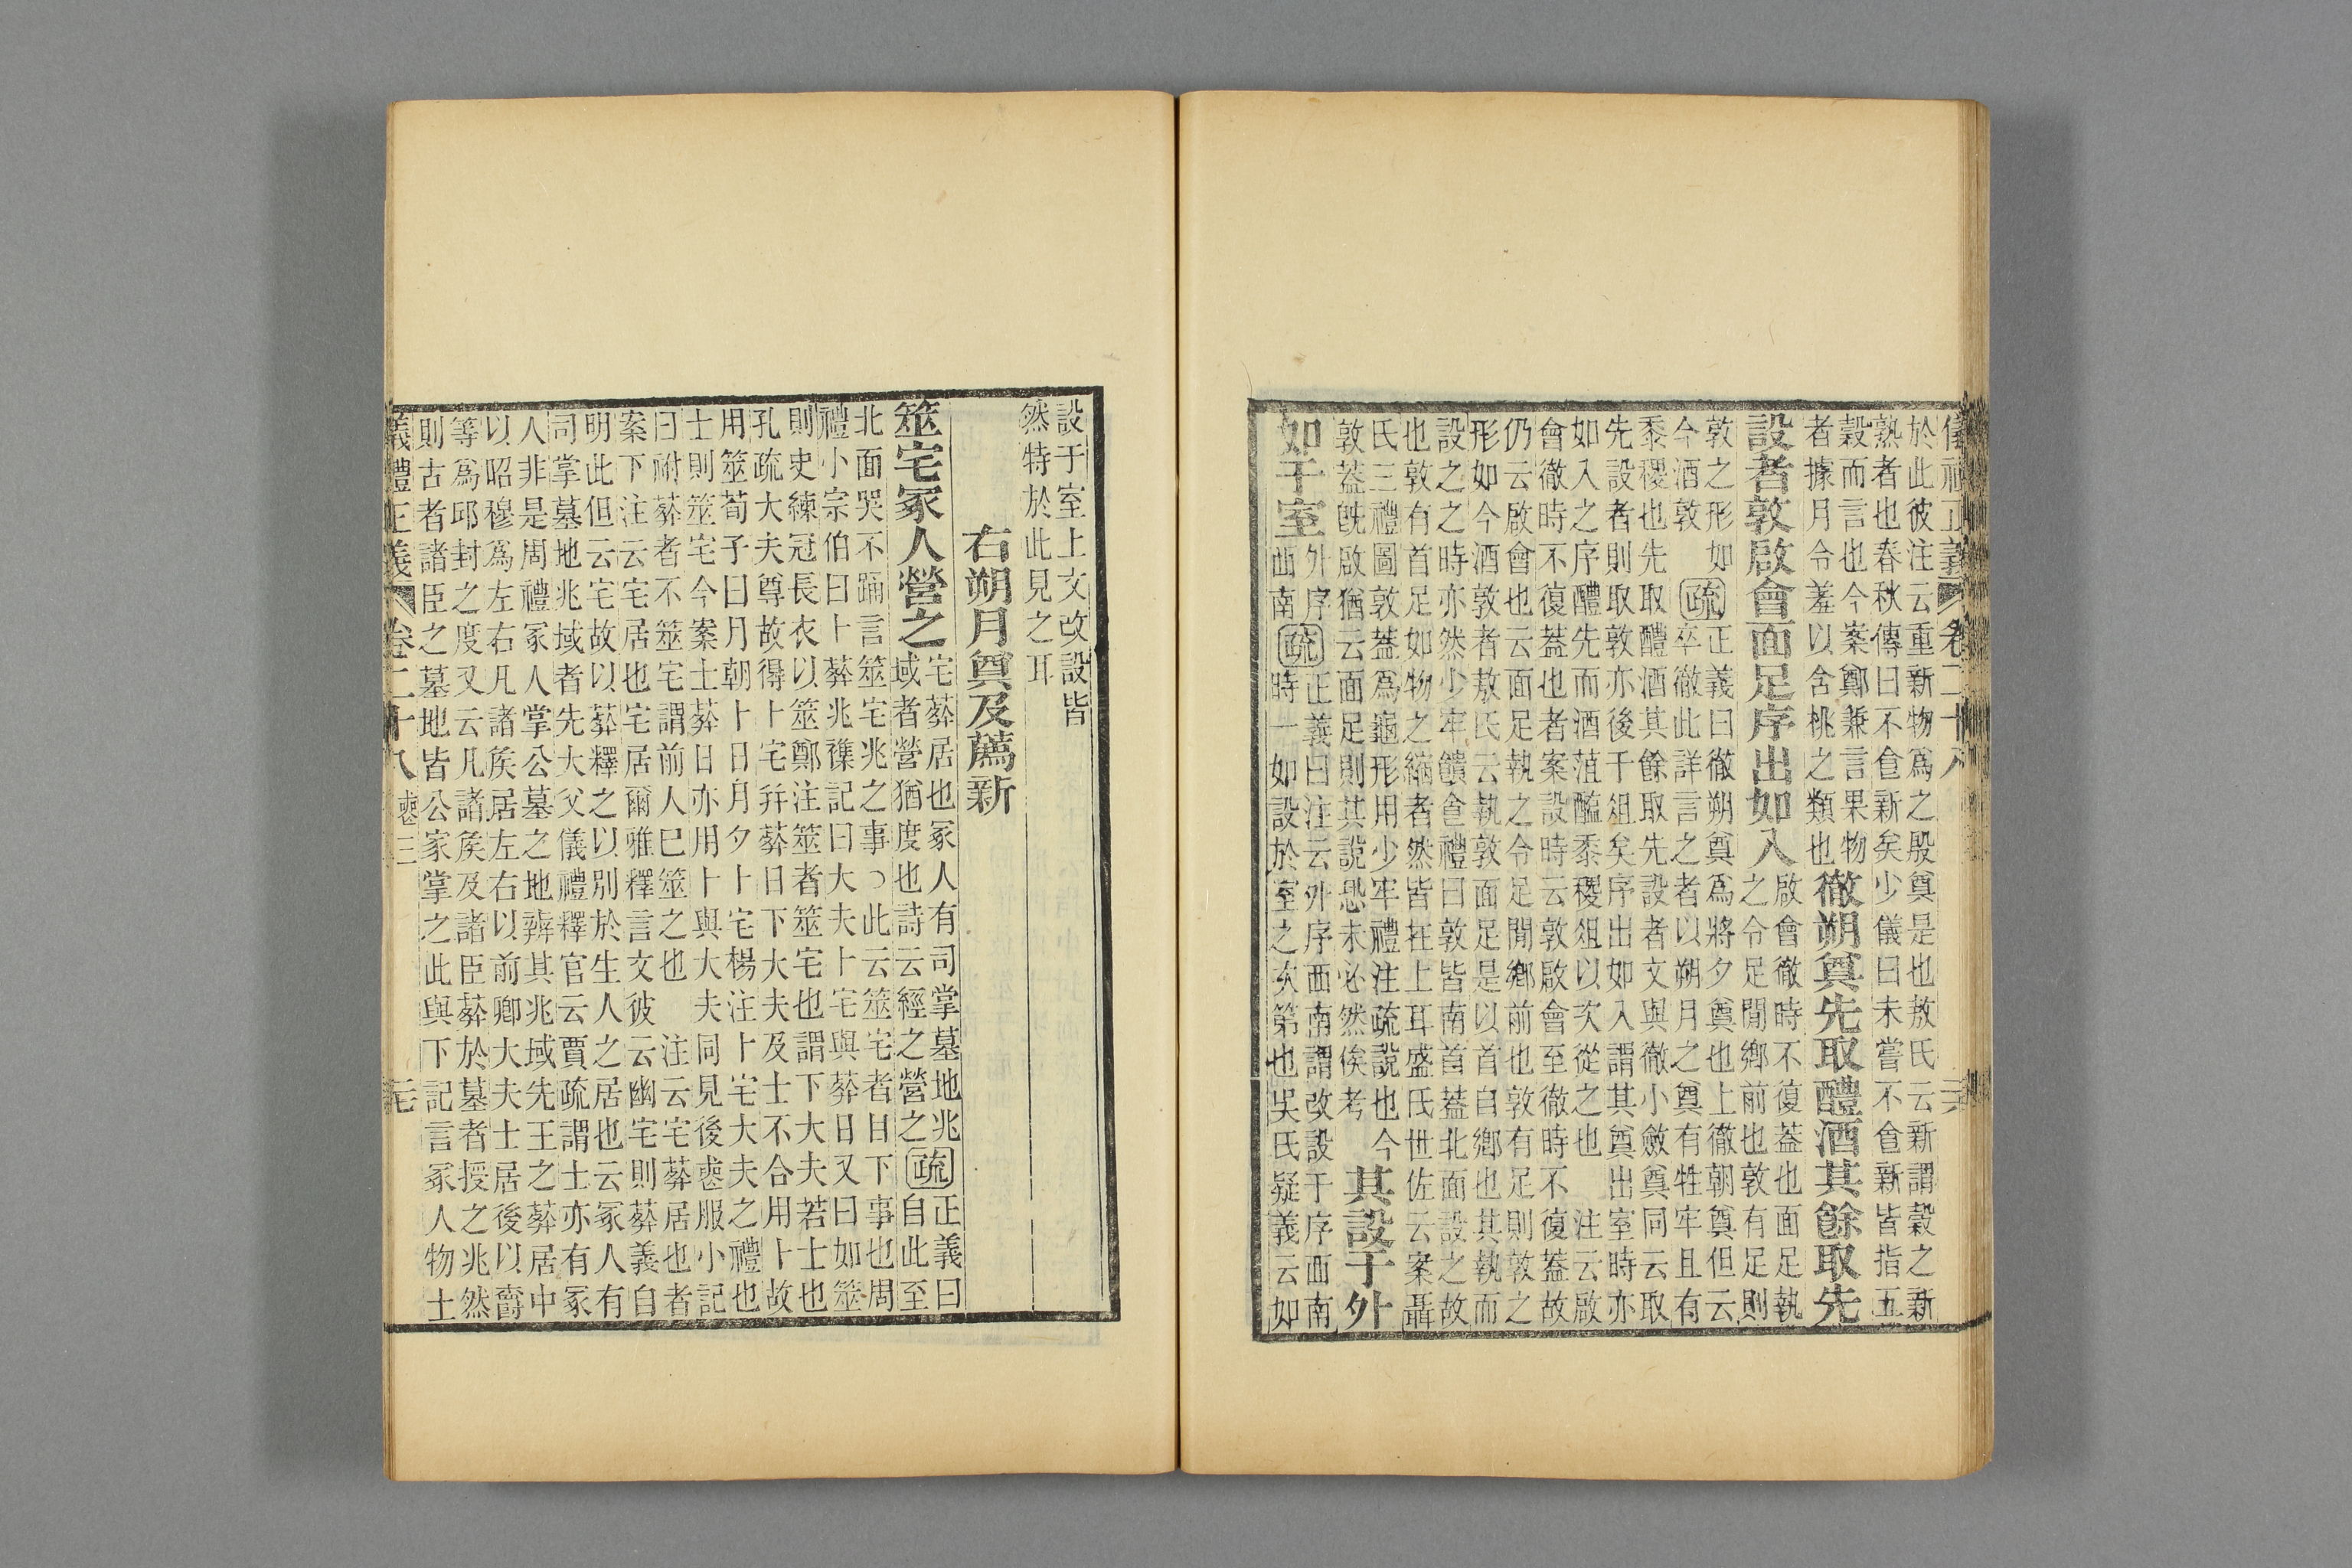 儀禮正義 卷二十八
於此彼注云重新物爲之殷奠是也敖氏云新謂穀之新
熟者也春秋傳曰不食新矣少儀曰未嘗不食新皆指五
穀而言也今案鄭兼言果物
者據月令羞以含桃之類也
徹朔奠先取醴酒其餘取先
設者敦啟會面足序出如入
啟會徹時不復蓋也面足執
之令足閒鄉前也敦有足則
敦之形如
今酒敦
疏
正義曰徹朔奠爲將夕奠也上徹朝奠但云
卒徹此詳言之者以朔月之奠有牲牢且有
黍稷也先取醴酒其餘取先設者文與徹小斂奠同云取
先設者則取敦亦後于俎矣序出如入謂其奠出室時亦
如入之序醴先而酒菹醢黍稷俎以次從之也 注云啟
會徹時不復蓋也者案設時云敦啟會至徹時不復蓋故
仍云啟會也云面足執之令足閒鄉前也敦有足則敦之
形如今酒敦者敖氏云執敦面足是以首自鄉也其執而
設之之時亦然少牢饋食禮曰敦皆南首蓋北面設之故
也敦有首足如物之縮者然皆在上耳盛氏世佐云案聶
氏三禮圖敦蓋爲龜形用少牢禮注疏說也今
敦蓋旣啟猶云面足則其說恐未必然俟考
其設于外
如于室
外序
西南
疏
正義曰注云外序西南謂改設于序西南
時一如設於室之次第也吳氏疑義云如
設于室上文改設皆
然特於此見之耳
右朔月奠及薦新
筮宅冢人營之
宅葬居也冢人有司掌墓地兆
域者營猶度也詩云經之營之
疏
正義曰
自此至
北面哭不踊言筮宅兆之事○此云筮宅者日下事也周
禮小宗伯曰卜葬兆雜記曰大夫卜宅與葬日又曰如筮
則史練冠長衣以筮鄭注筮者筮宅也謂下大夫若士也
孔疏大夫尊故得卜宅幷葬日下大夫及士不合用卜故
用筮荀子曰月朝卜日月夕卜宅楊注卜宅大夫之禮也
士則筮宅今案士葬日亦用卜與大夫同見後喪服小記
曰祔葬者不筮宅謂前人已筮之也 注云宅葬居也者
案下注云宅居也宅居爾雅釋言文彼云幽宅則葬義自
明此但云宅故以葬釋之以別於生人之居也云冢人有
司掌墓地兆域者先大父儀禮釋官云賈疏謂士亦有冢
人非是周禮冢人掌公墓之地辨其兆域先王之葬居中
以昭穆爲左右凡諸侯居左右以前卿大夫士居後以爵
等爲邱封之度又云凡諸侯及諸臣葬於墓者授之兆然
則古者諸臣之墓地皆公家掌之此與下記言冢人物土
儀禮正義 卷二十八 喪三